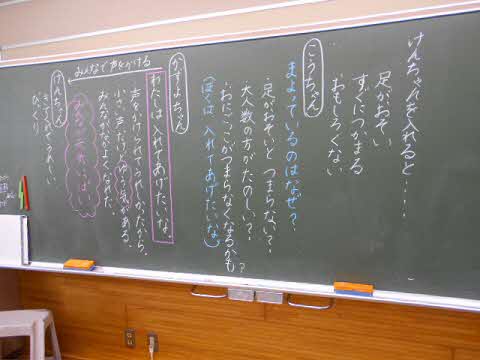 けんちゃんを入れると・・・・
足がおそい
すぐにつかまる
おもしろくない
こうちゃん
まよっているのはなぜ？
・足がおそいとつまらない？
大人数の方がたのしい？
・おにごっこがつまらなくなるかも？
(ぼくは、入れてあげたいな)
かすよちゃん
わたしは入れてあげたいな。
声をかけられてうれしかったから。
小さい声だけどゆう気がある。
みんなながよくなれた
みんなで声をかける
けんちゃん
さそわれてうれしい
びっくり